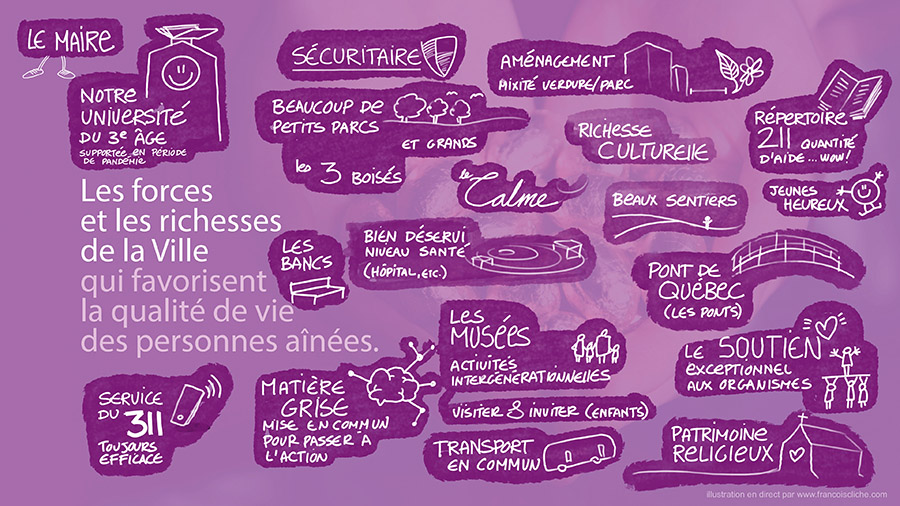 LE MAIRE
NOTRE
UNIVERSITÉ
DU 3e ÂGE
SUPPORTÉE EN PÉRIODE
DE PANDÉMIE
Les forces
et les richesses
de la Ville
qui favorisent
la qualité de vie
des personnes aînées.
SÉCURITAIRE
BEAUCOUP DE
PETITS PARCS
ET GRANDS
les 3 BOISÉS
AMÉNAGEMENT
MIXITÉ VERDURE/PARC
RICHESSE
CULTURELLE
RÉPERTOIRE
211 QUANTITÉ
D'AIDE...WOW!
le Calme
BEAUX SENTIERS
JEUNES
HEUREUX
LES
BANCS
BIEN DÉSERVI
NIVEAU SANTÉ
(HÔPITAL, ETC.)
PONT DE
QUÉBEC
(LES PONTS)
LES
MUSÉES
ACTIVITÉS
INTERGÉNÉRATIONNELLES
VISITER & INVITER (ENFANTS)
LE SOUTIEN
EXCEPTIONNEL
AUX ORGANISMES
SERVICE
DU
311
TOUJOURS
EFFICACE
MATIÈRE
GRISE
MISE EN COMMUN
POUR PASSER À
L'ACTION
TRANSPORT
EN COMMUN
PATRIMOINE
RELIGIEUX
illustration en direct par www.francoiscliche.com